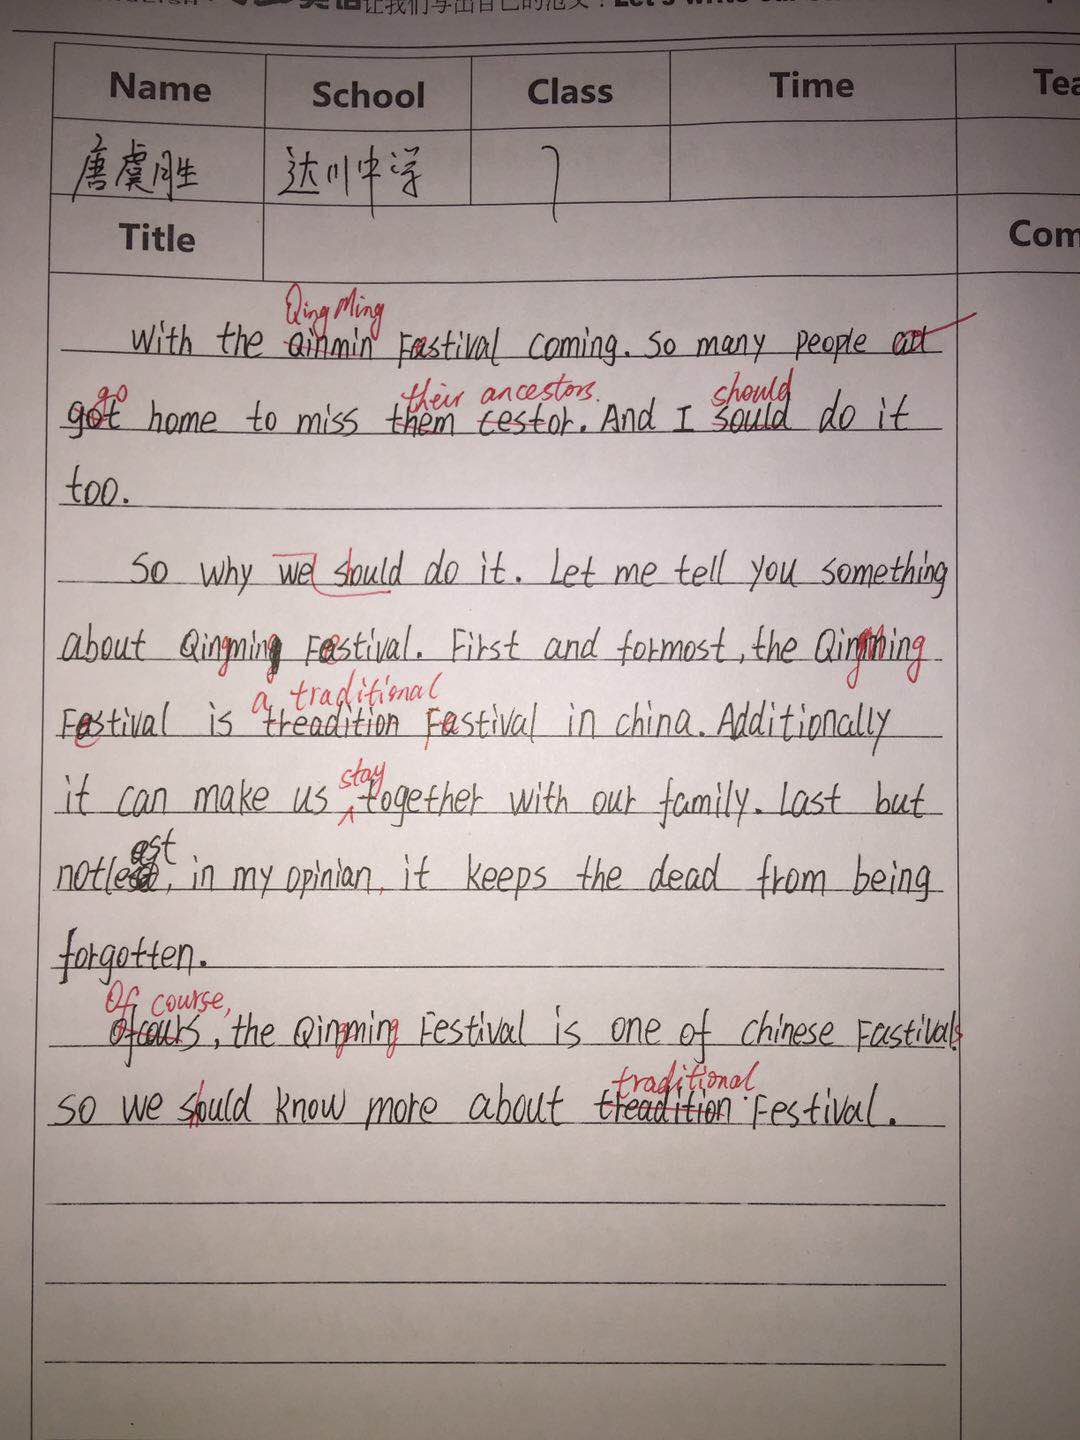 英语让我们写出自己的范文!
Name School Class Time Tea
唐虞胜 达川中学 7
Title Com
Qing Ming
With the Qinmin Fastival coming. So many people
go their ancestors. should
got home to miss them cestor. And I sould do it
too.
So why we should do it. Let me tell you something
about Qingming Festival. First and formost, the Qingming
a traditional
Festival is treadition Festival in china. Additionally
stay
it can make us together with our family. Last but
est
notle, in my opinian, it keeps the dead from being
forgotten.
Of course,
Ofcours, the Qingming Festival is one of chinese Fastivals
traditional
so we should know more about treadition Festival.